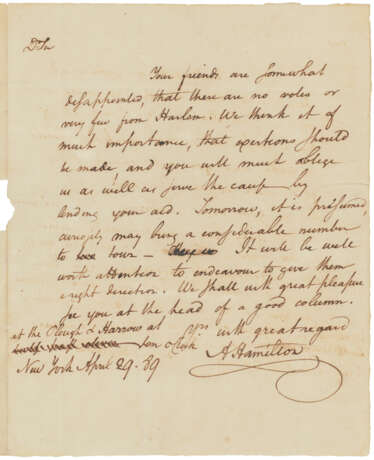 Dr Sir
Your friends are somewhat
disappointed, that there are no votes or
very few from Harlem. We think it of
much importance, that exertions should
be made, and you will much oblige
us as well as serve the cause by
lending your aid. Tomorrow, it is presumed,
curiosity may bring a considerable number
to town — It will be well
worth attention to endeavour to give them
a right direction. We shall with great pleasure
see you at the head of a good column.
at the Plough & Harrow at Yrs with great regard
ten oClock. A Hamilton
New York April 29. 89